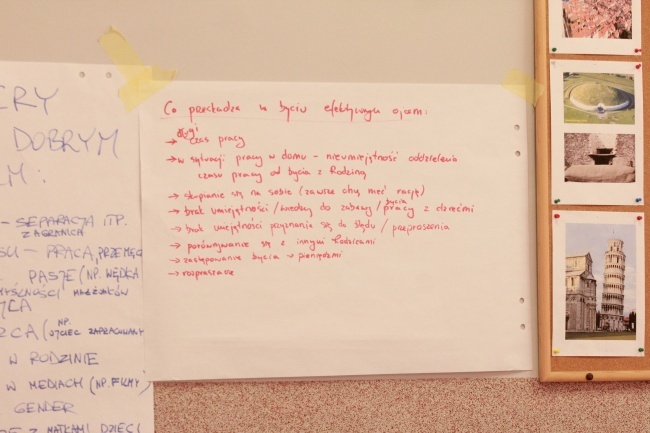 ERY
DOBRYM
M:
- SEPARACJA ITP.
ZAGRANICA
SU - PRACA, PRZEMĘC
- PASJE (NP. WĘDKA
MAŁŻONKÓW
RCA (NP.
OJCIEC ZAPRACOWANY
W RODZINIE
W MEDIACH (NP. FILMY)
GENDER
Z MATKAMI DZIECI
Co przeszkadza w byciu efektywnym ojcem:
długi
→ czas pracy
→ w sytuacji pracy w domu - nieumiejętność oddzielenia
czasu pracy od bycia z Rodziną
→ skupianie się na sobie (zawsze chcę mieć rację)
→ brak umiejętności / wiedzy do zabawy / bycia pracy z dziećmi
→ brak umiejętności przyznania się do błędu / przeproszenia
→ porównywanie się z innymi Rodzicami
→ zastępowanie bycia pieniędzmi
→ rozpraszacze